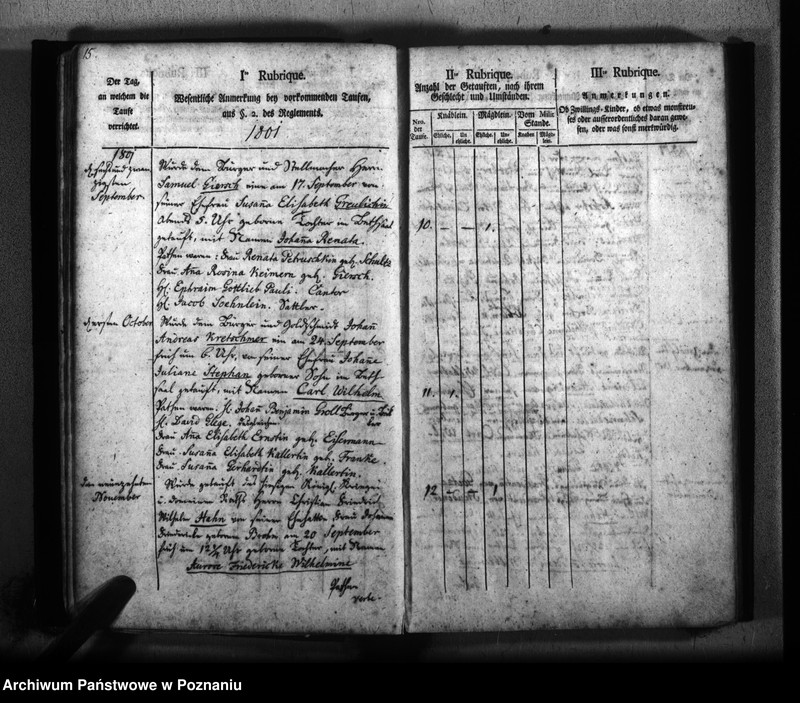 15.
Der Tag,
an welchem die
Taufe
verrichtet.
I.te Rubrique.
Wesentliche Anmerkung bey vorkommenden Taufen,
aus §. 2. des Reglements.
1801
II.te Rubrique.
Anzahl der Getauften, nach ihrem
Geschlecht und Umständen.
Nro.
der
Taufe.
Knäblein.
Mägdlein.
Vom Milit.
Stande.
Ehliche.
Un
ehliche.
Ehliche.
Un-
ehliche.
Knaben
Mägd-
lein.
III.te Rubrique.
Anmerkungen.
Ob Zwillings-Kinder, ob etwas monstreu-
ses oder ausserordentliches daran gewe-
sen, oder was sonst merkwürdig.
1801
September
Wurde dem Bürger und Stellmacher Herrn
Samuel Giersch eine am 17. September von
seiner Ehefrau Susaña Elisabeth
Abends 5. Uhr geborne Tochter im Bethsaal
getauft, mit Namen Johaña Renata.
Pathen waren: Frau Renata Petruschkin geb. Schultz
Frau Aña Rosina Keimern geb. Giersch.
H. Ephraim Gottlieb Pauli. Cantor
H. Jacob Soehnlein. Sattler.
10. — — 1.
d. ersten October
Wurde dem Bürger und Goldschmidt Johañ
Andreas Kretschmer ein am 24. September
früh um 6. Uhr, von seiner Ehefrau Johañe
Juliane Stephan geborner Sohn im Beth-
saal getauft, mit Namen Carl Wilhelm
Pathen waren. H. Johañ Benjamin Groll Bürger u.
H. David Elege.
Frau Aña Elisabeth Ernstin geb. Eisermann
Frau Susaña Elisabeth Kallertin geb. Franke.
Frau Susaña Gerhardtin geb. Kallertin.
11. 1.
November
Wurde getauft des hiesigen Königl.
u. Herrn Christian Friedrich
Wilhelm Hahn von seiner Ehegattin Frau
Friederike geborne am 20 September
früh um 12 ½ Uhr geborne Tochter, mit Namen
Aurore Friedericke Wilhelmine
12 — — 1
Pathen
verte.
Archiwum Państwowe w Poznaniu